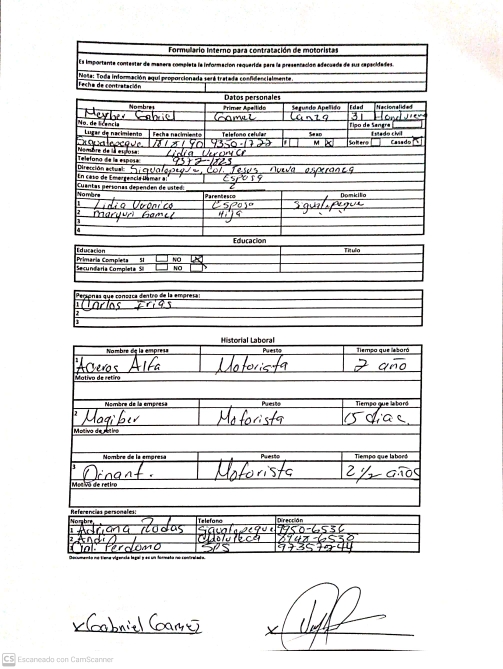 Formulario Interno para contratación de motoristas
Es importante contestar de manera completa la informacion requerida para la presentacion adecuada de sus capacidades.
Nota: Toda información aquí proporcionada será tratada confidencialmente.
Fecha de contratación
Datos personales
Nombres Primer Apellido Segundo Apellido Edad Nacionalidad
Gabriel Lanza 31
No. de licencia Tipo de Sangre
Lugar de nacimiento Fecha nacimiento Telefono celular Sexo Estado civil
9350-1777 F M X Soltero Casado
Nombre de la esposa: Lidia
Telefono de la esposa:
Dirección actual: Siguatepeque, Col. Jesus nueva esperanza
En caso de Emergencia llamar a: Esposa
Cuantas personas dependen de usted: 2
Nombre Parentesco Domicilio
1 Lidia Esposa
2 Hija
3
4
Educacion
Educacion Titulo
Primaria Completa SI NO X
Secundaria Completa SI NO
Personas que conozca dentro de la empresa:
1 Carlos
2
3
Historial Laboral
Nombre de la empresa Puesto Tiempo que laboró
1 Aceros Alfa Motorista año
Motivo de retiro
Nombre de la empresa Puesto Tiempo que laboró
2 Motorista 15 dias
Motivo de retiro
Nombre de la empresa Puesto Tiempo que laboró
3 Dinant. Motorista 2 1/2 años
Motivo de retiro
Referencias personales:
Nombre Telefono Dirección
1 Adriana Rodas 9950-6536
2 Choluteca
3 Perdomo SPS
Documento no tiene vigencia legal y es un formato no controlado.
x Gabriel x
CS Escaneado con CamScanner